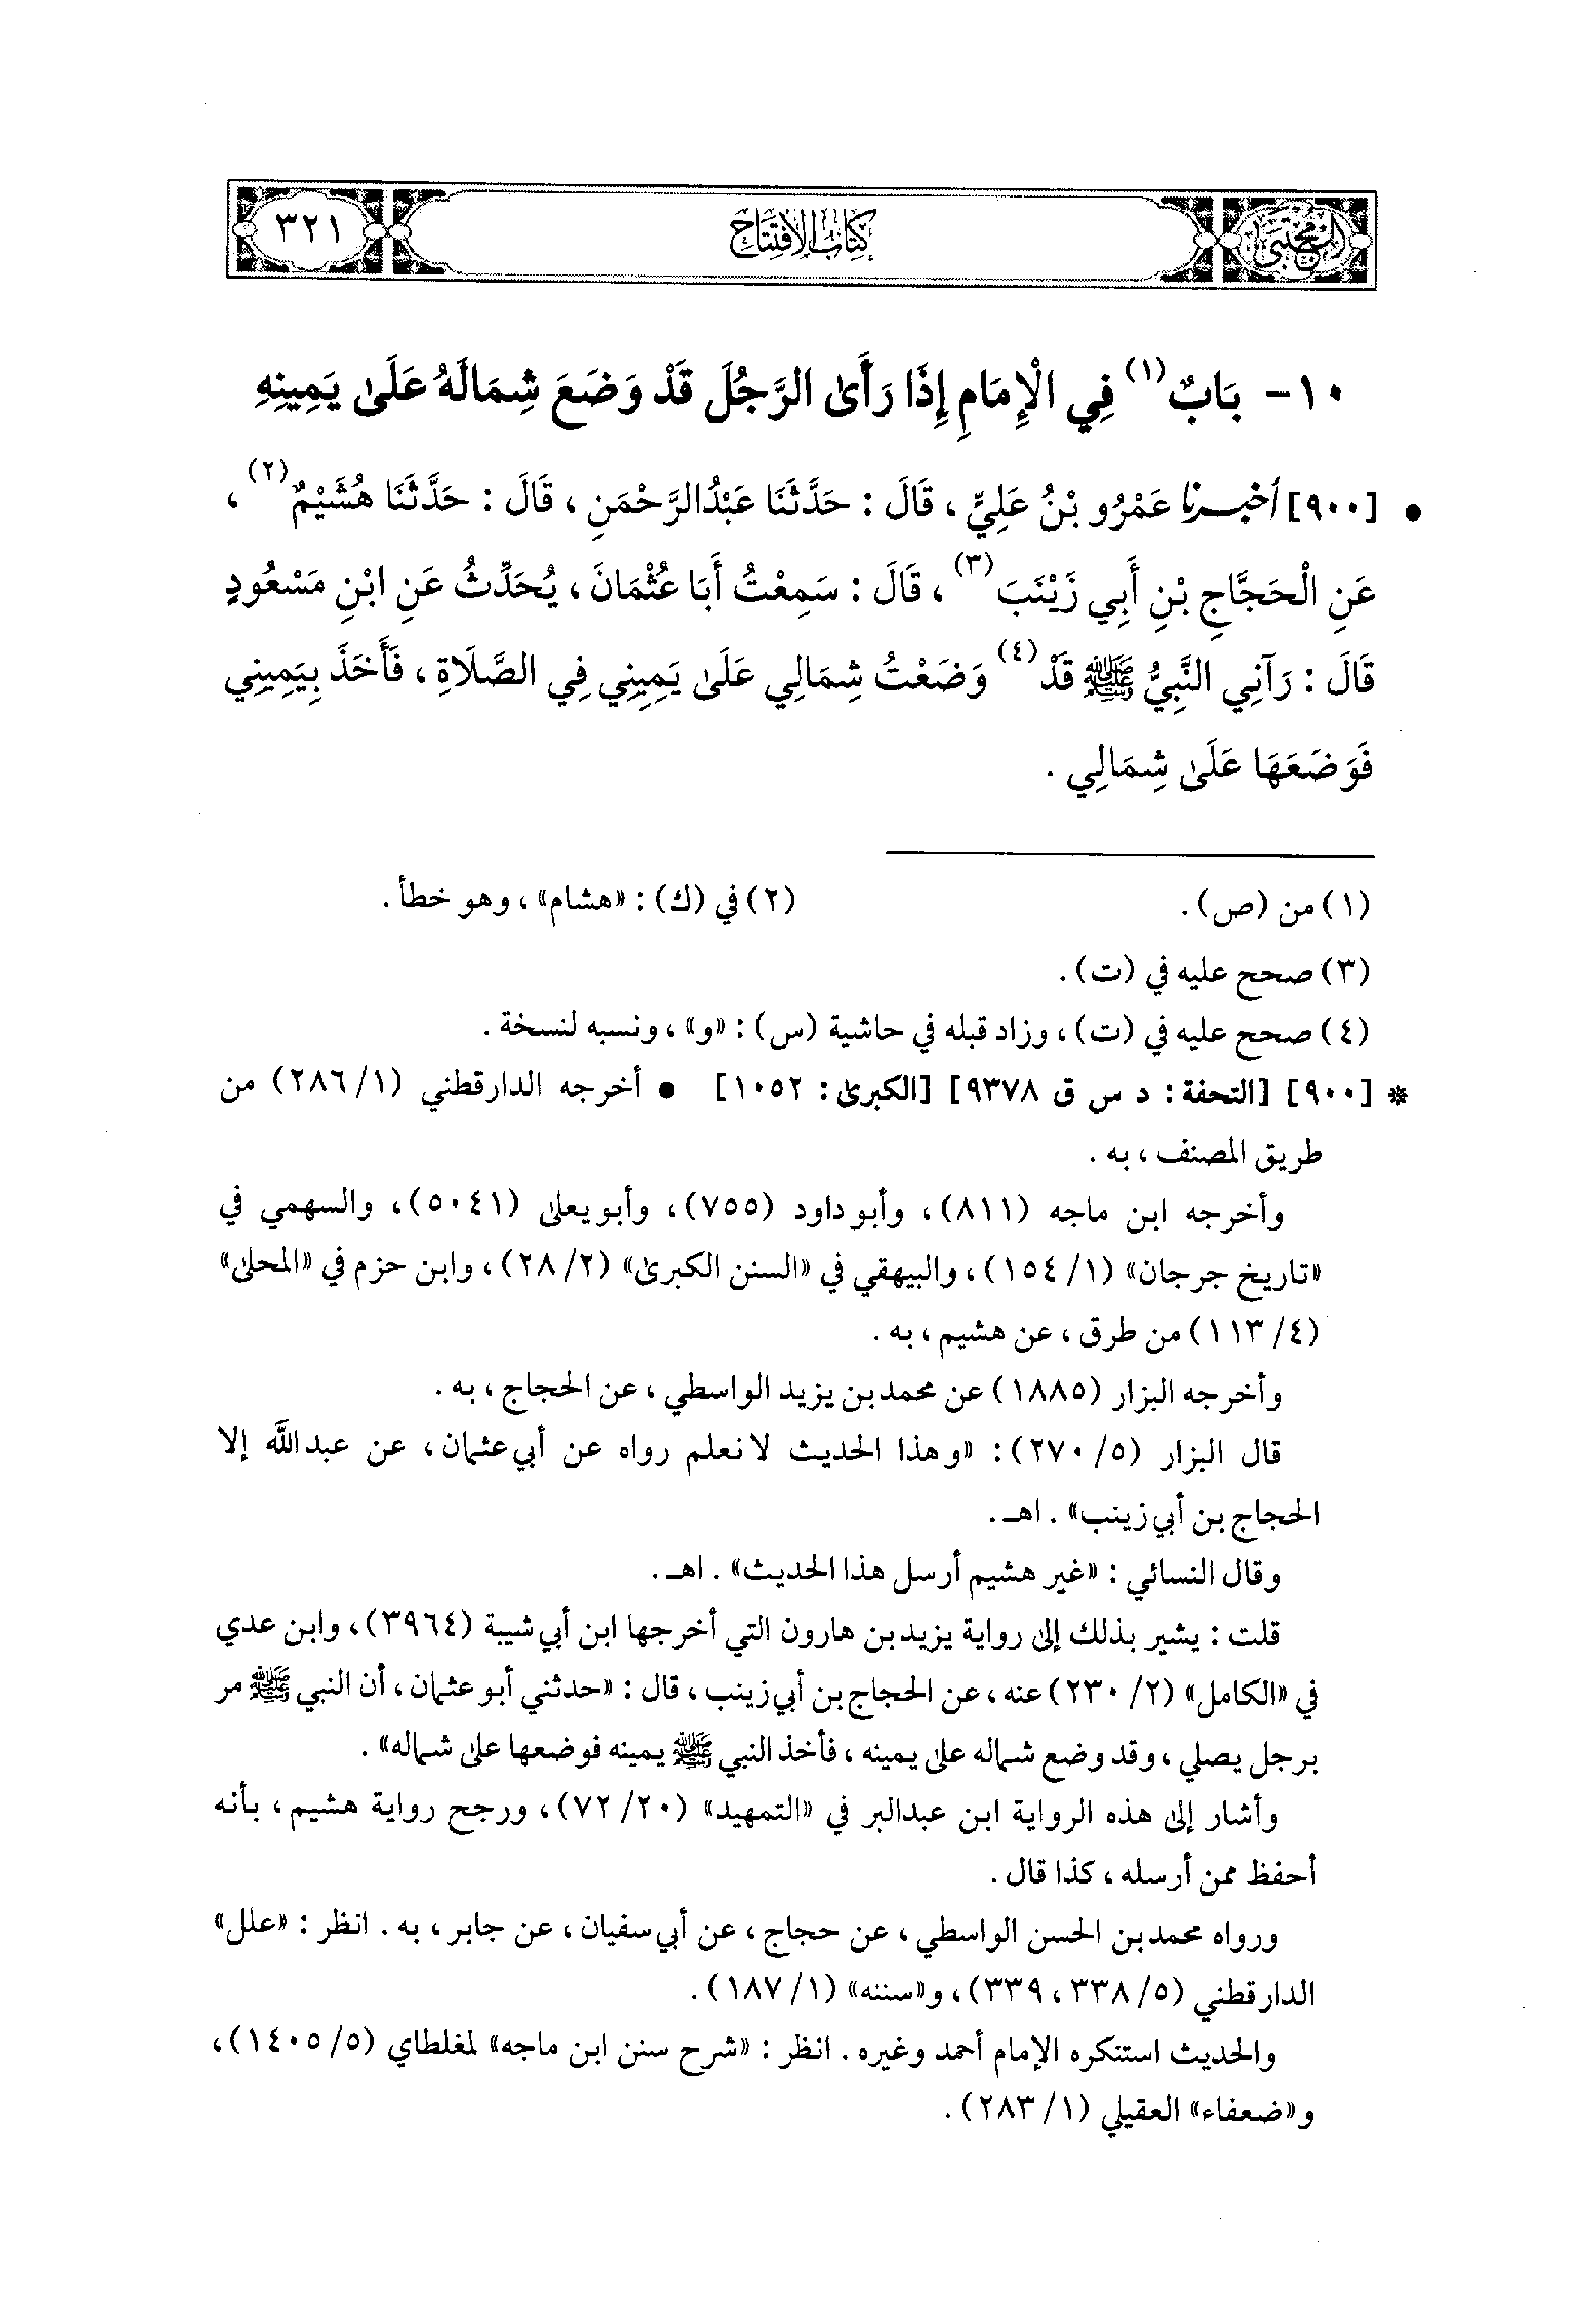 المجتبى
كتاب الافتتاح
٣٢١
١٠- بَابٌ (١) فِي الْإِمَامِ إِذَا رَأَىٰ الرَّجُلَ قَدْ وَضَعَ شِمَالَهُ عَلَىٰ يَمِينِهِ
• [٩٠٠] أخبرنا عَمْرُو بْنُ عَلِيٍّ ، قَالَ : حَدَّثَنَا عَبْدُالرَّحْمَنِ ، قَالَ : حَدَّثَنَا هُشَيْمٌ (٢) ،
عَنِ الْحَجَّاجِ بْنِ أَبِي زَيْنَبَ (٣) ، قَالَ : سَمِعْتُ أَبَا عُثْمَانَ ، يُحَدِّثُ عَنِ ابْنِ مَسْعُودٍ
قَالَ : رَآنِي النَّبِيُّ ﷺ قَدْ (٤) وَضَعْتُ شِمَالِي عَلَىٰ يَمِينِي فِي الصَّلَاةِ ، فَأَخَذَ بِيَمِينِي
فَوَضَعَهَا عَلَىٰ شِمَالِي .
(١) من (ص) .
(٢) في (ك) : «هشام» ، وهو خطأ .
(٣) صحح عليه في (ت) .
(٤) صحح عليه في (ت) ، وزاد قبله في حاشية (س) : «و» ، ونسبه لنسخة .
* [٩٠٠] [التحفة : د س ق ٩٣٧٨] [الكبرىٰ : ١٠٥٢] • أخرجه الدارقطني (١/ ٢٨٦) من
طريق المصنف ، به .
وأخرجه ابن ماجه (٨١١) ، وأبو داود (٧٥٥) ، وأبو يعلىٰ (٥٠٤١) ، والسهمي في
«تاريخ جرجان» (١/ ١٥٤) ، والبيهقي في «السنن الكبرىٰ» (٢/ ٢٨) ، وابن حزم في «المحلىٰ»
(٤/ ١١٣) من طرق ، عن هشيم ، به .
وأخرجه البزار (١٨٨٥) عن محمد بن يزيد الواسطي ، عن الحجاج ، به .
قال البزار (٥/ ٢٧٠) : «وهذا الحديث لا نعلم رواه عن أبي عثمان ، عن عبد اللَّه إلا
الحجاج بن أبي زينب» . اهـ .
وقال النسائي : «غير هشيم أرسل هذا الحديث» . اهـ .
قلت : يشير بذلك إلىٰ رواية يزيد بن هارون التي أخرجها ابن أبي شيبة (٣٩٦٤) ، وابن عدي
في «الكامل» (٢/ ٢٣٠) عنه ، عن الحجاج بن أبي زينب ، قال : «حدثني أبو عثمان ، أن النبي ﷺ مر
برجل يصلي ، وقد وضع شماله علىٰ يمينه ، فأخذ النبي ﷺ يمينه فوضعها علىٰ شماله» .
وأشار إلىٰ هذه الرواية ابن عبدالبر في «التمهيد» (٢٠/ ٧٢) ، ورجح رواية هشيم ، بأنه
أحفظ ممن أرسله ، كذا قال .
ورواه محمد بن الحسن الواسطي ، عن حجاج ، عن أبي سفيان ، عن جابر ، به . انظر : «علل»
الدارقطني (٥/ ٣٣٨ ، ٣٣٩) ، و«سننه» (١/ ١٨٧) .
والحديث استنكره الإمام أحمد وغيره . انظر : «شرح سنن ابن ماجه» لمغلطاي (٥/ ١٤٠٥) ،
و«ضعفاء» العقيلي (١/ ٢٨٣) .